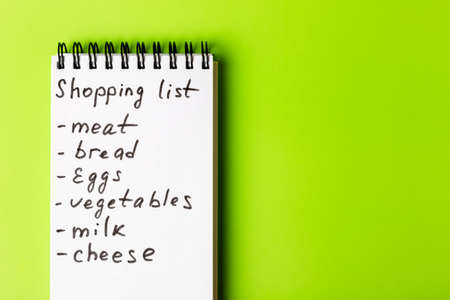 Shopping list
- meat
- bread
- Eggs
- vegetables
- milk
- cheese